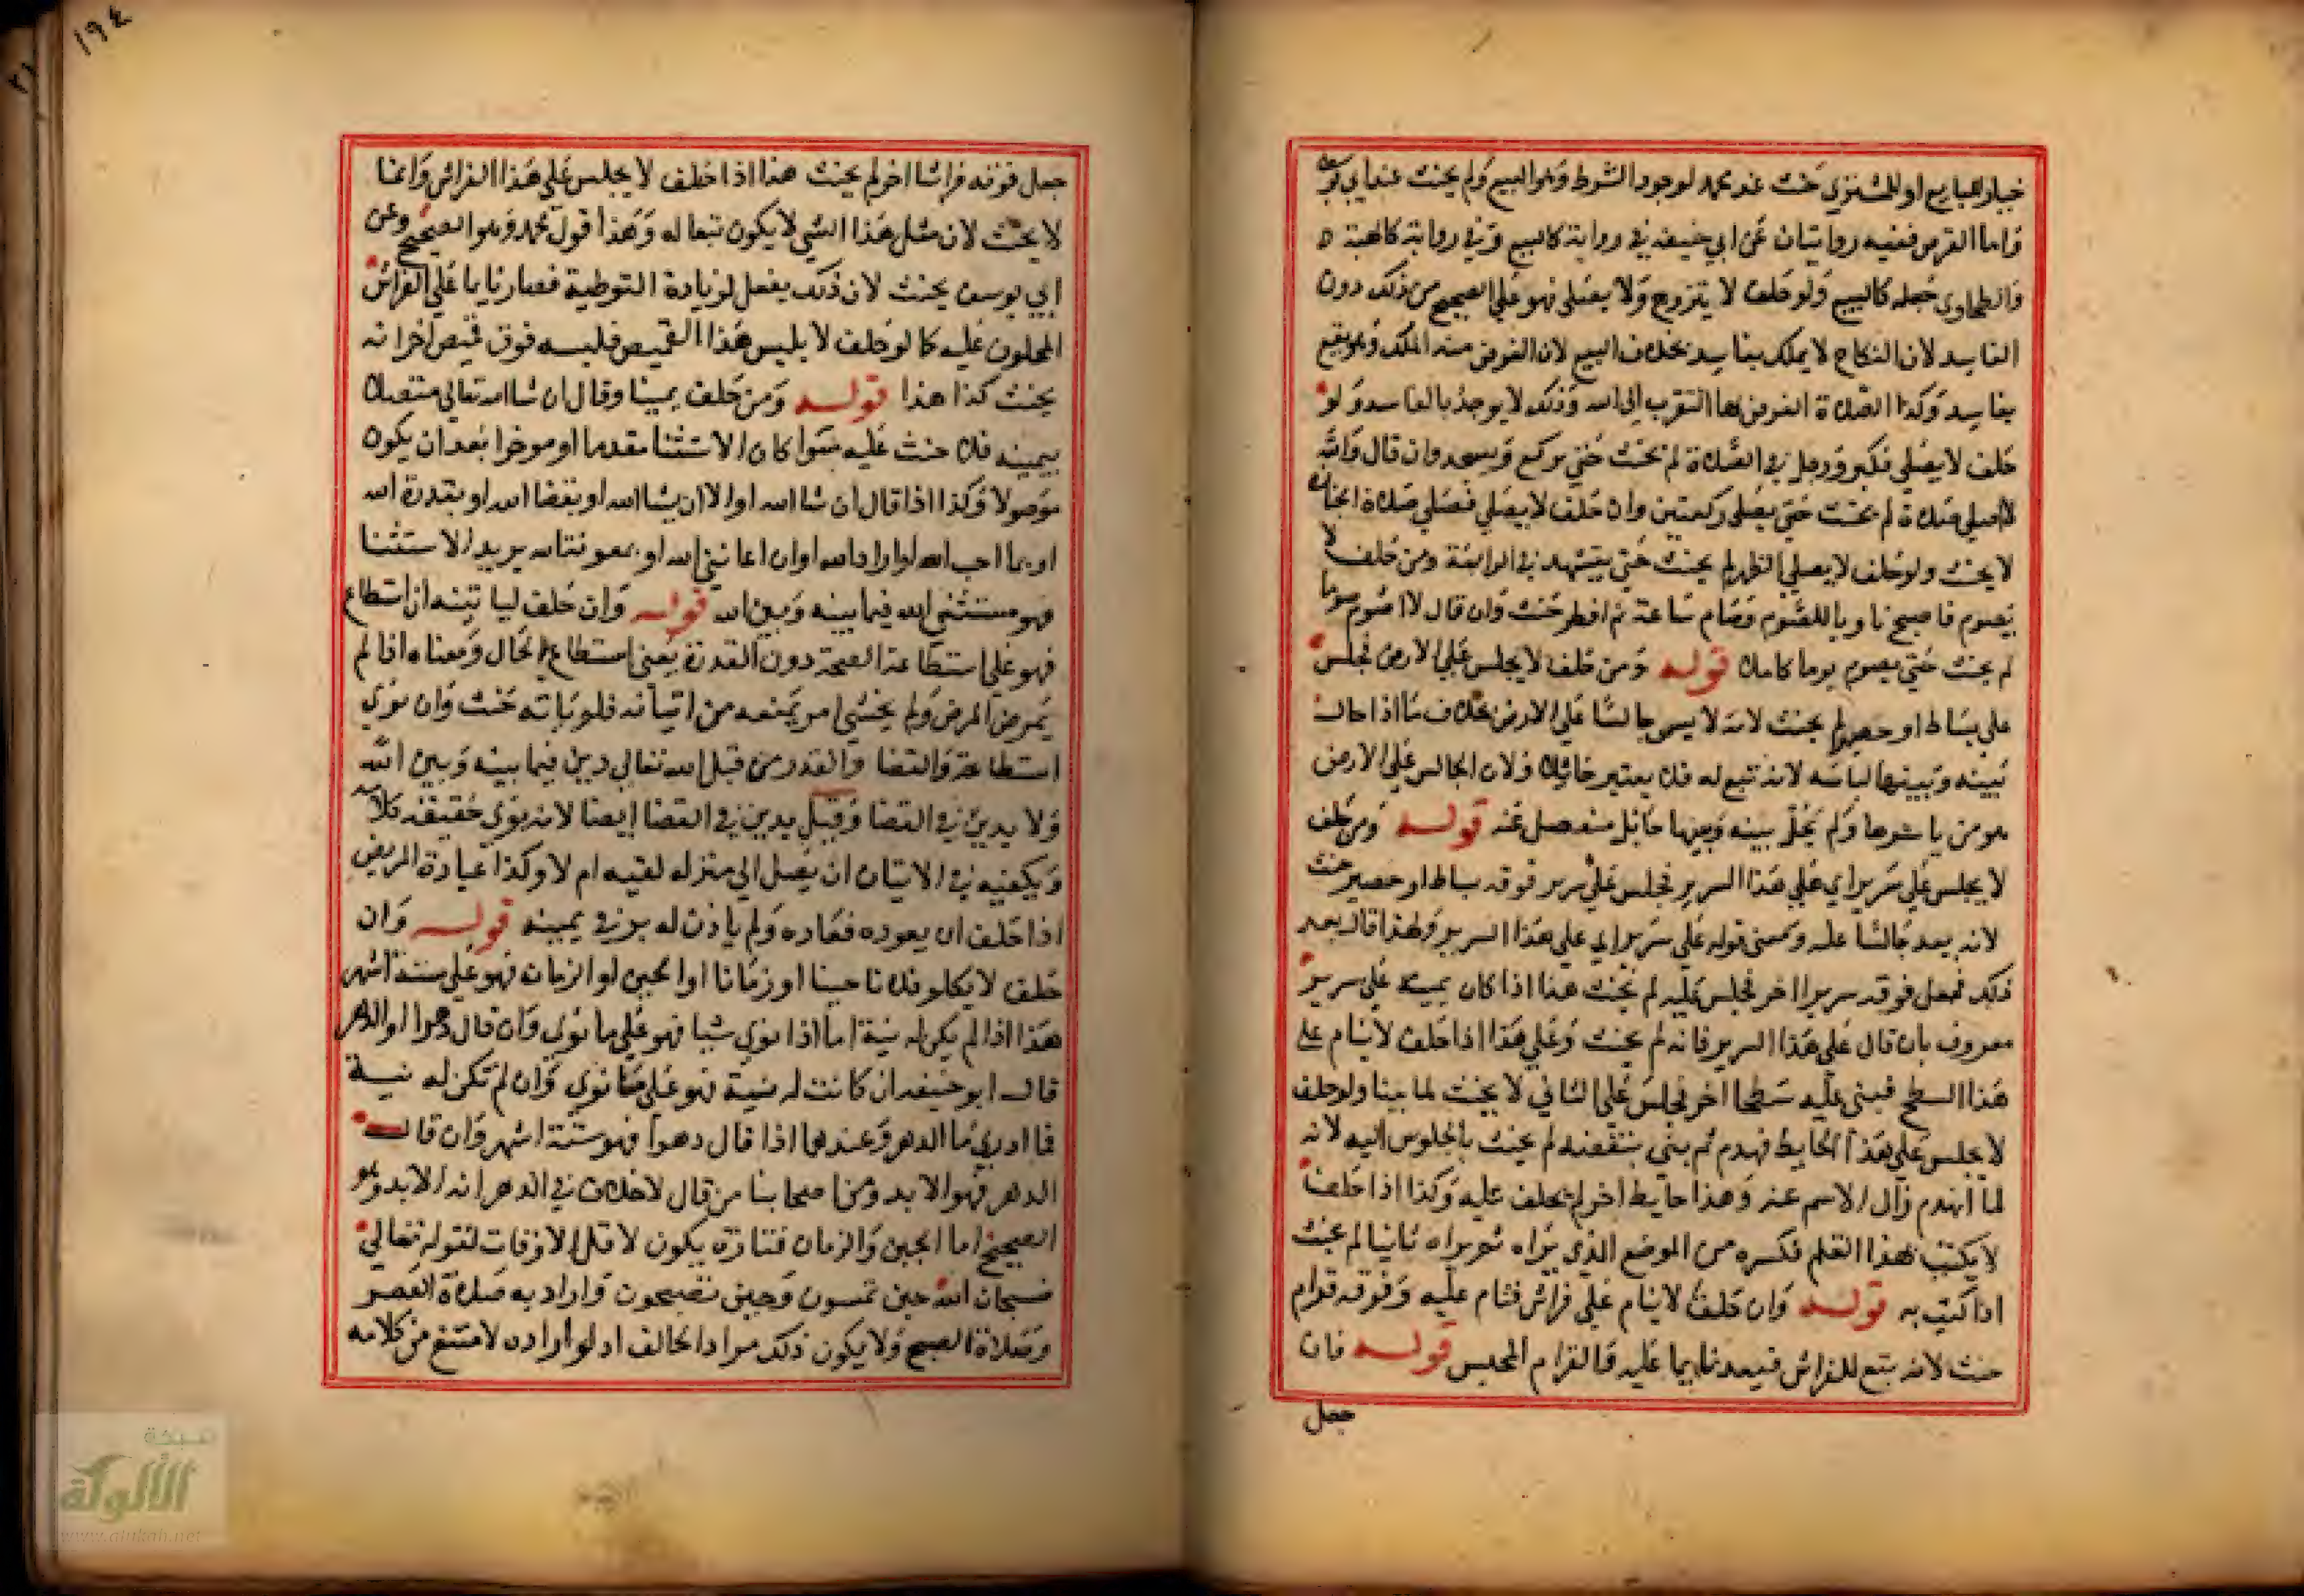 خيار للبايع او للمشتري حنث عند محمد لوجود الشرط وهو البيع ولم يحنث عند ابي يوسف
واما القرض ففيه روايتان عن ابي حنيفة في رواية كالبيع وفي رواية كالهبة ه
والطحاوي جعله كالبيع ولو حلف لا يتزوج ولا يصلي فهو على الصحيح من ذلك دون
الفاسد لان النكاح لا يملك بفاسد بخلاف البيع لان الغرض منه الملك وهو يقع
بفاسد وكذا الصلاة الغرض بها التقرب الى الله وذلك لا يوجد بالفاسد ولو
حلف لا يصلي فكبر ودخل في الصلاة لم يحنث حتى يركع ويسجد وان قال والله
لا اصلي صلاة لم يحنث حتى يصلي ركعتين وان حلف لا يصلي فصلى صلاة الجنازة
لا يحنث ولو حلف لا يصلي الظهر لم يحنث حتى يتشهد في الرابعة ومن حلف لا
يصوم فاصبح ناويا للصوم فصام ساعة ثم افطر حنث وان قال لا اصوم يوما
لم يحنث حتى يصوم يوما كاملا قوله ومن حلف لا يجلس على الارض فجلس
على بساط او حصير لم يحنث لانه لا يسمى جالسا على الارض بخلاف ما اذا حال
بينه وبينها لباسه لانه تبع له فلا يعتبر حائلا ولان الجالس على الارض
هو من باشرها ولم يحل بينه وبينها حائل منفصل عنه قوله ومن حلف
لا يجلس على سرير اي على هذا السرير فجلس على سرير فوقه بساط او حصير حنث
لانه يعد جالسا عليه ومعنى قوله على سرير اي على هذا السرير ولهذا قال بعد
ذلك فجعل فوقه سريرا اخر فجلس عليه لم يحنث هذا اذا كان يمينه على سرير
معروف بان قال على هذا السرير فانه لم يحنث وعلى هذا اذا حلف لا ينام على
هذا السطح فبنى عليه سطحا اخر فجلس على الثاني لا يحنث لما بينا ولو حلف
لا يجلس على هذا الحايط فهدم ثم بنى بنقضه لم يحنث بالجلوس اليه لانه
لما انهدم زال الاسم عنه وهذا حايط اخر لم يحلف عليه وكذا اذا حلف
لا يكتب بهذا القلم فكسره من الموضع الذي براه ثم براه ثانيا لم يحنث
اذا كتب به قوله وان حلف لا ينام على فراش فنام عليه وفوقه قرام
حنث لانه تبع للفراش فيعد نايما عليه فالقرام المحبس قوله فان
جعل
١٩٤
جعل فوقه فراشا اخر لم يحنث هذا اذا حلف لا يجلس على هذا الفراش وانما
لا يحنث لان مثل هذا الشي لا يكون تبعا له وهذا قول محمد وهو الصحيح وعن
ابي يوسف يحنث لان ذلك يفعل لزيادة التوطية فصار نايما على الفراش
المحلوف عليه كما لو حلف لا يلبس هذا القميص فلبسه فوق قميص اخر انه
يحنث كذا هذا قوله ومن حلف يمينا وقال ان شا الله تعالى متصلا
بيمينه فلا حنث عليه سوا كان الاستثنا مقدما او موخرا بعد ان يكون
موصولا وكذا اذا قال ان شا الله او الا ان يشا الله او بقضا الله او بقدرة الله
او بما احب الله او اراد الله او ان اعانني الله او بمعونة الله يريد الاستثنا
فهو مستثني الله فيما بينه وبين الله قوله وان حلف لياتينه ان استطاع
فهو على استطاعة الصحة دون القدرة يعني استطاع الحال ومعناه اذا لم
يمرض المرض ولم يخشى امر يمنعه من اتيانه فلو ياته حنث وان نوى
استطاعة والقضا والقدر من قبل الله تعالى دين فيما بينه وبين الله
ولا يدين في القضا وقيل يدين في القضا ايضا لانه نوى حقيقة كلامه
ويكفيه في الاتيان ان يصل الى منزله لقيه ام لا وكذا عيادة المريض
اذا حلف ان يعوده فعاده ولم ياذن له بر في يمينه قوله وان
حلف لا يكلم فلانا حينا او زمانا او الحين او الزمان فهو على ستة اشهر
هذا اذا لم يكن له نية اما اذا نوى شيا فهو على ما نوى وان قال دهرا او الدهر
قال ابو حنيفة ان كانت له نية فهو على ما نوى وان لم تكن له نية
فما ادري ما الدهر وعندهما اذا قال دهرا فهو ستة اشهر وان قال
الدهر فهو الابد ومن اصحابنا من قال لا خلاف في الدهر انه الابد وهو
الصحيح اما الحين والزمان فتارة يكون لاقل الاوقات لقوله تعالى
فسبحان الله حين تمسون وحين تصبحون واراد به صلاة العصر
وصلاة الصبح ولا يكون ذلك مراد الحالف اذ لو اراده لامتنع من كلامه
شبكة
الألوكة
www.alukah.net